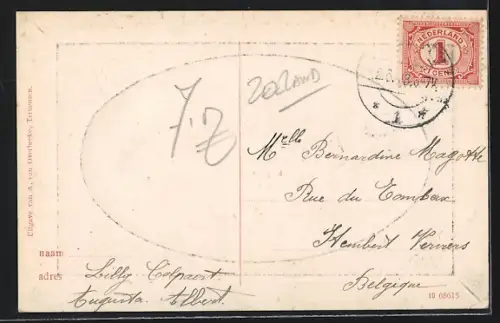 NEDERLAND
1
CENT
1
7.Z
ZEELAND
Melle Bernardine Magotte
Rue du Tombeux
Hembert Verviers
Belgique
Uitgave van A. van Overbeeke, Terneuzen.
naam
adres
Lilly Colpaert
Augusta Albert
19 08615